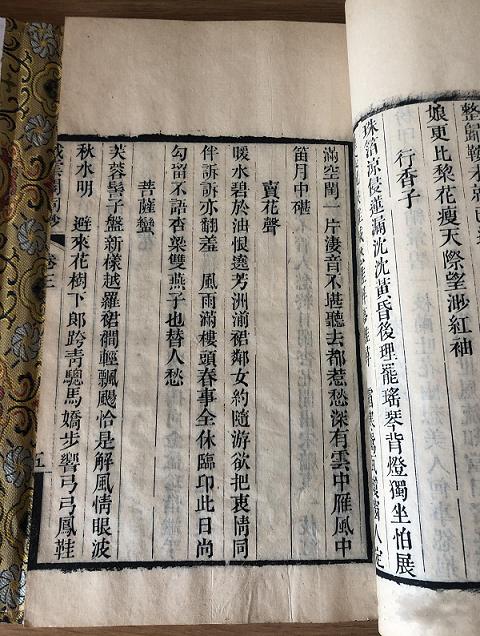 娘更比黎花瘦天際望渺紅袖
行香子
滿空閨一片淒音不堪聽去都惹愁深有雲中雁風中
笛月中碪
賣花聲
暖水碧於油恨遶芳洲湔裙鄰女約隨游欲把衷情同
伴訴訴亦翻羞　風雨滿樓頭春事全休臨印此日尚
勾留不語杏梁雙燕子也替人愁
菩薩蠻
芙蓉髻子盤新樣越羅裙襇輕飄颺恰是解風情眼波
秋水明　避來花樹下郎跨青驄馬嬌步響弓弓鳳鞋
卷三
五